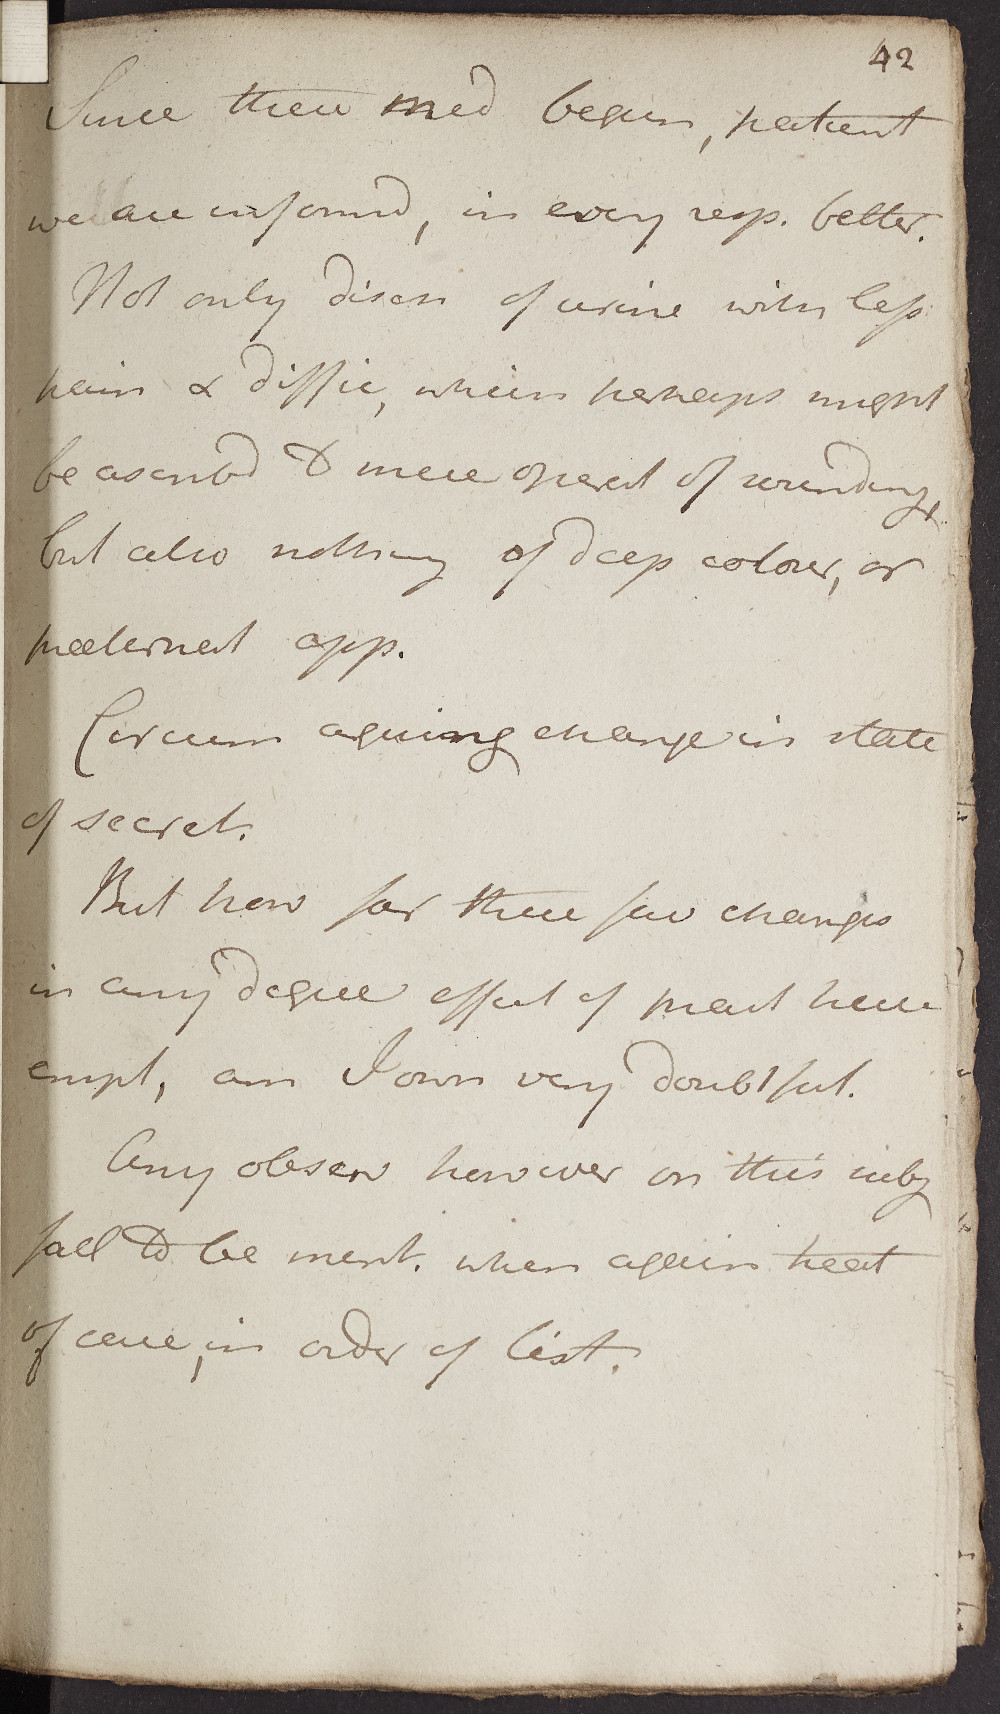 42
Since these med begun, patient
we are informd, in every resp. better.
Not only disch of urine with less
pain & diffic, which perhaps might
be ascribd to mere operat of sounding,
but also nothing of deep colour, or
preeternat app.
Circum arguing change in state
of secret.
But how far these few changes
in any degree effect of pract here
empl, am I own very doubtful.
Any observ however on this subj
fall to be ment. when again treat
of case, in order of list.